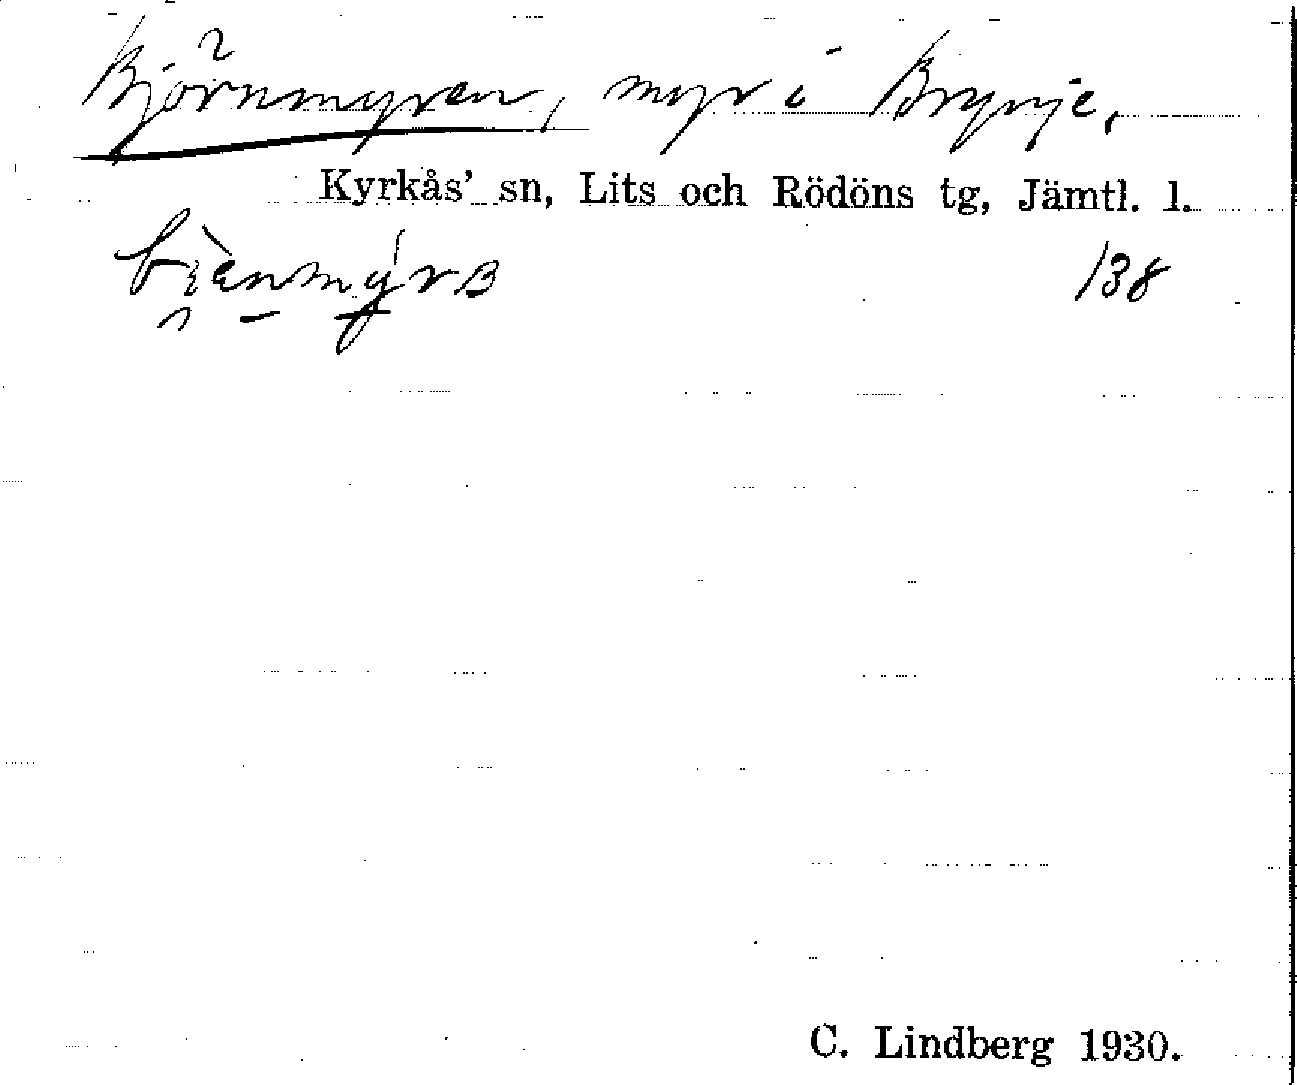 Björnmyren, myr i Brynje,
Kyrkås' sn, Lits och Rödöns tg, Jämtl. l.
138
C. Lindberg 1930.